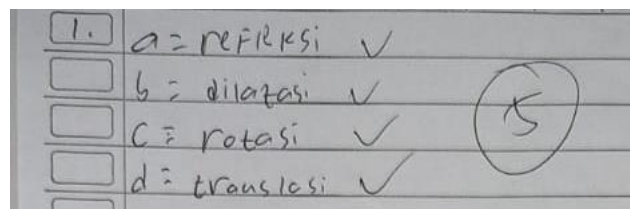 1. a = refleksi ✓
b = dilatasi ✓
c = rotasi ✓
d = translasi ✓
5